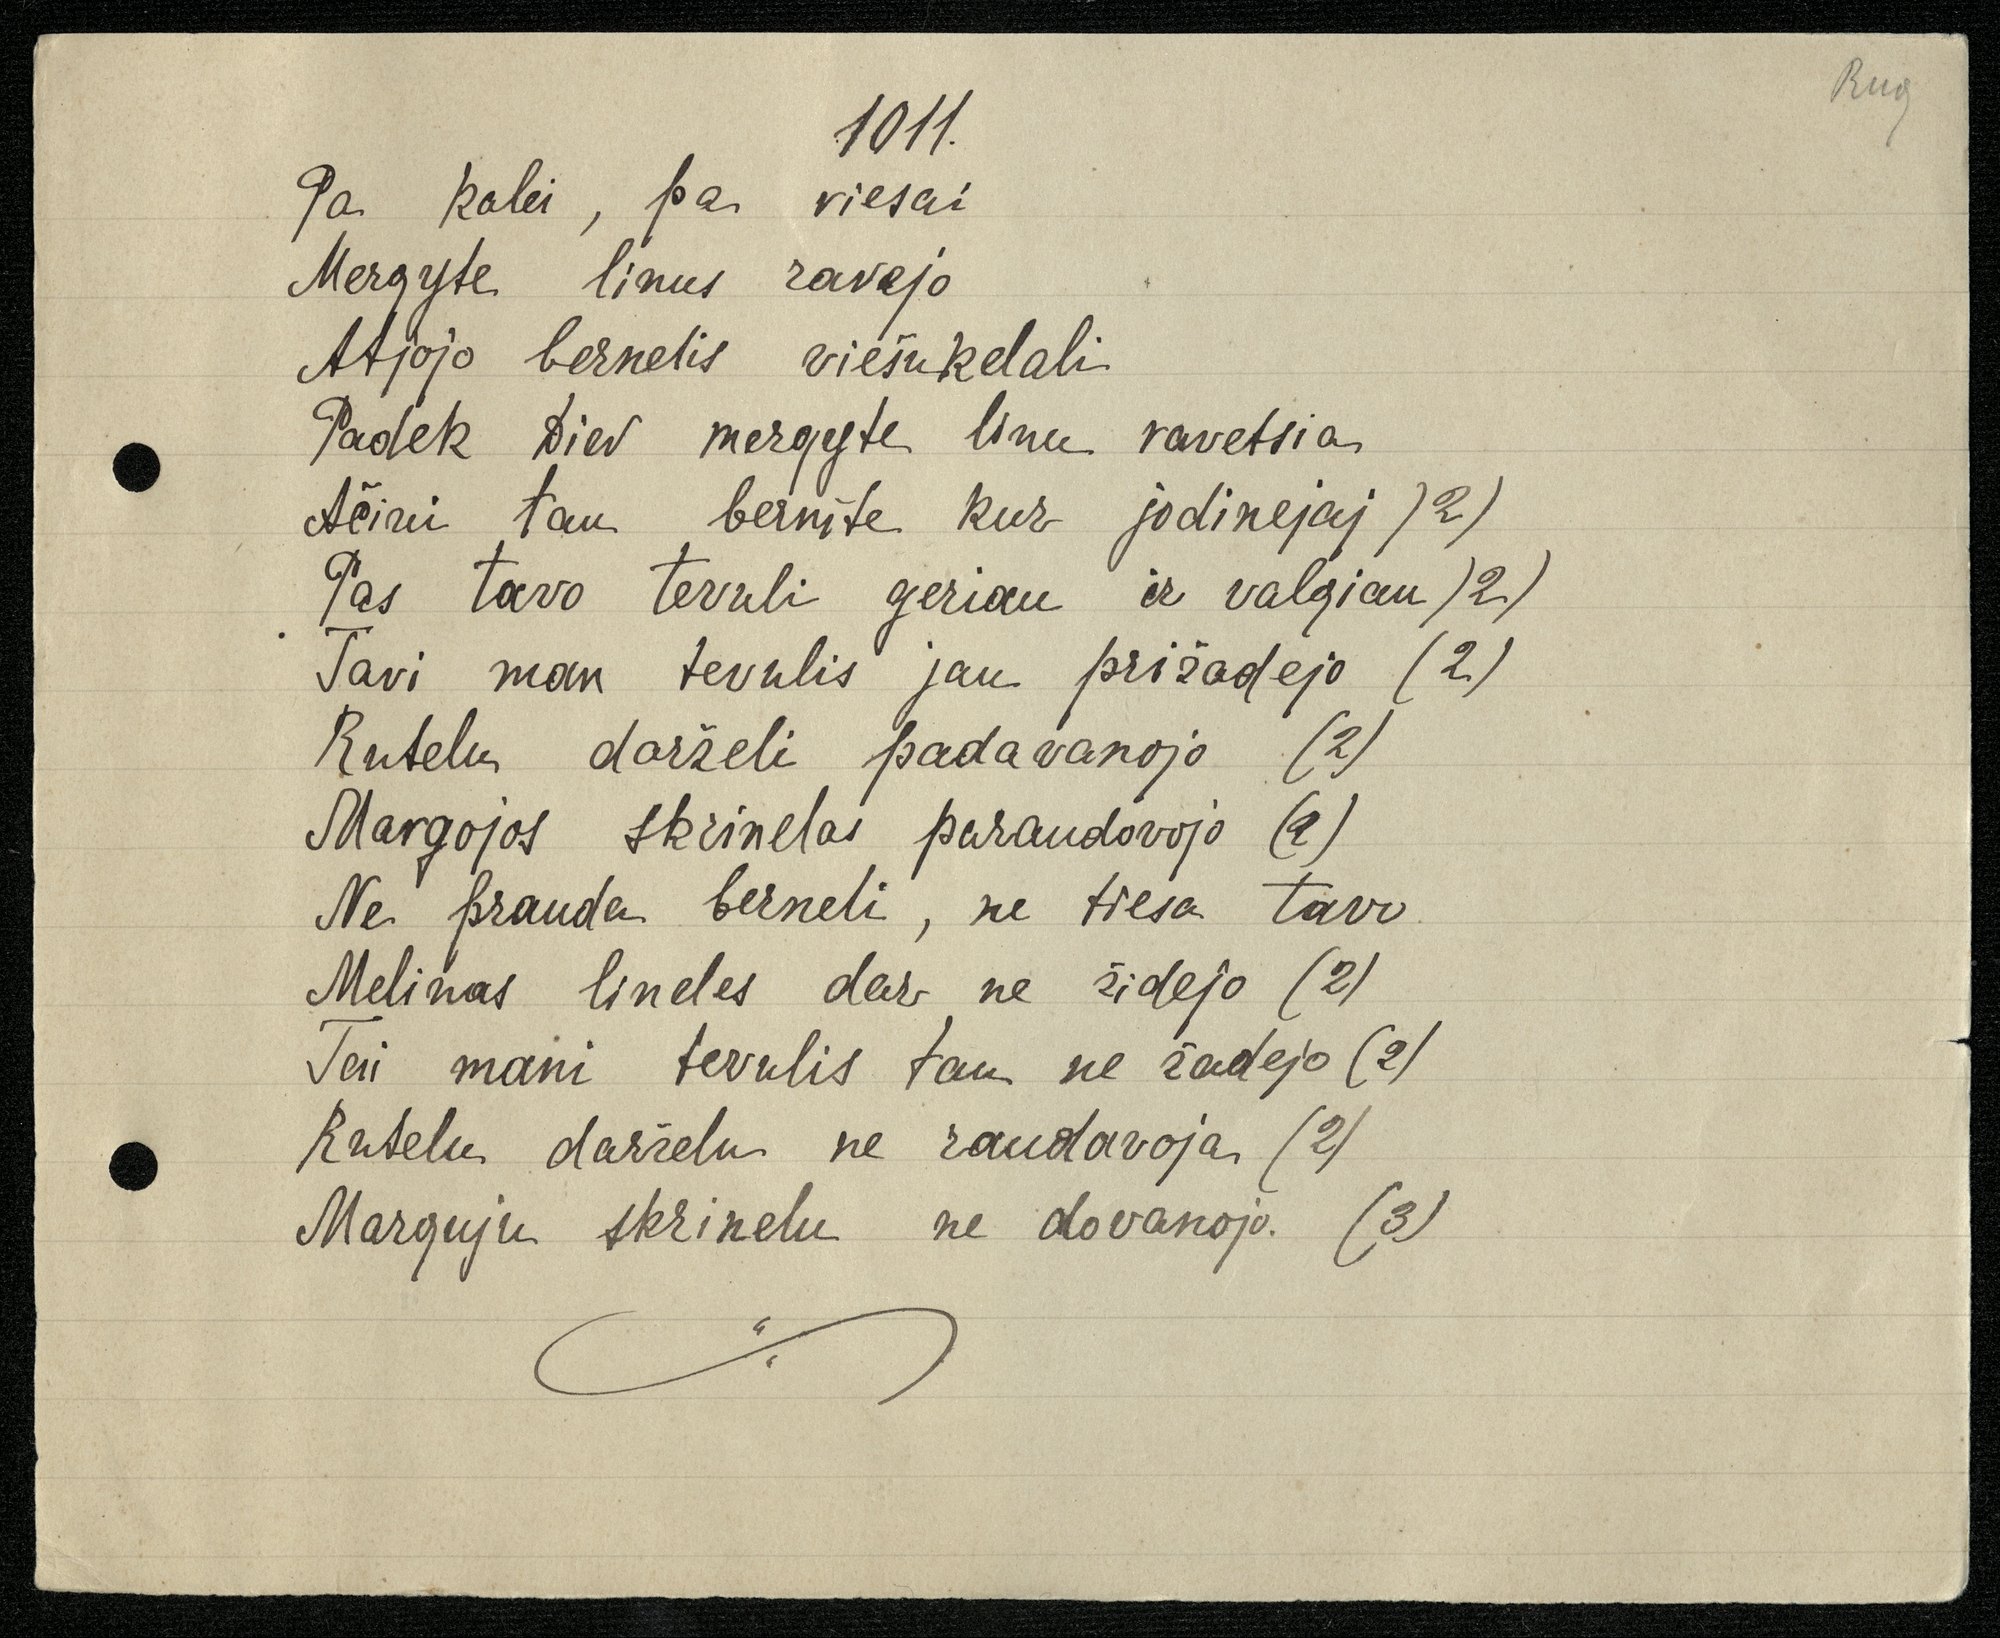 Rug
1011.
Pa kalei, pa viesai
Mergyte linus ravejo
Atjojo bernelis viešukelali
Padek Diev mergyte linu ravetsia
Ačiui tau bernite kur jodinejaj )2)
Pas tavo tevuli geriau ir valgiau )2)
Tavi man tevulis jau prižadejo (2)
Rutelu darželi padavanojo (2)
Margojos skrinelas paraudovojo (2)
Ne prauda berneli, ne tiesa tavo
Melinas lineles dar ne židejo (2)
Tai mani tevulis tau ne žadejo (2)
Rutelu darželu ne raudavoja (2)
Marguju skrinelu ne dovanojo. (3)